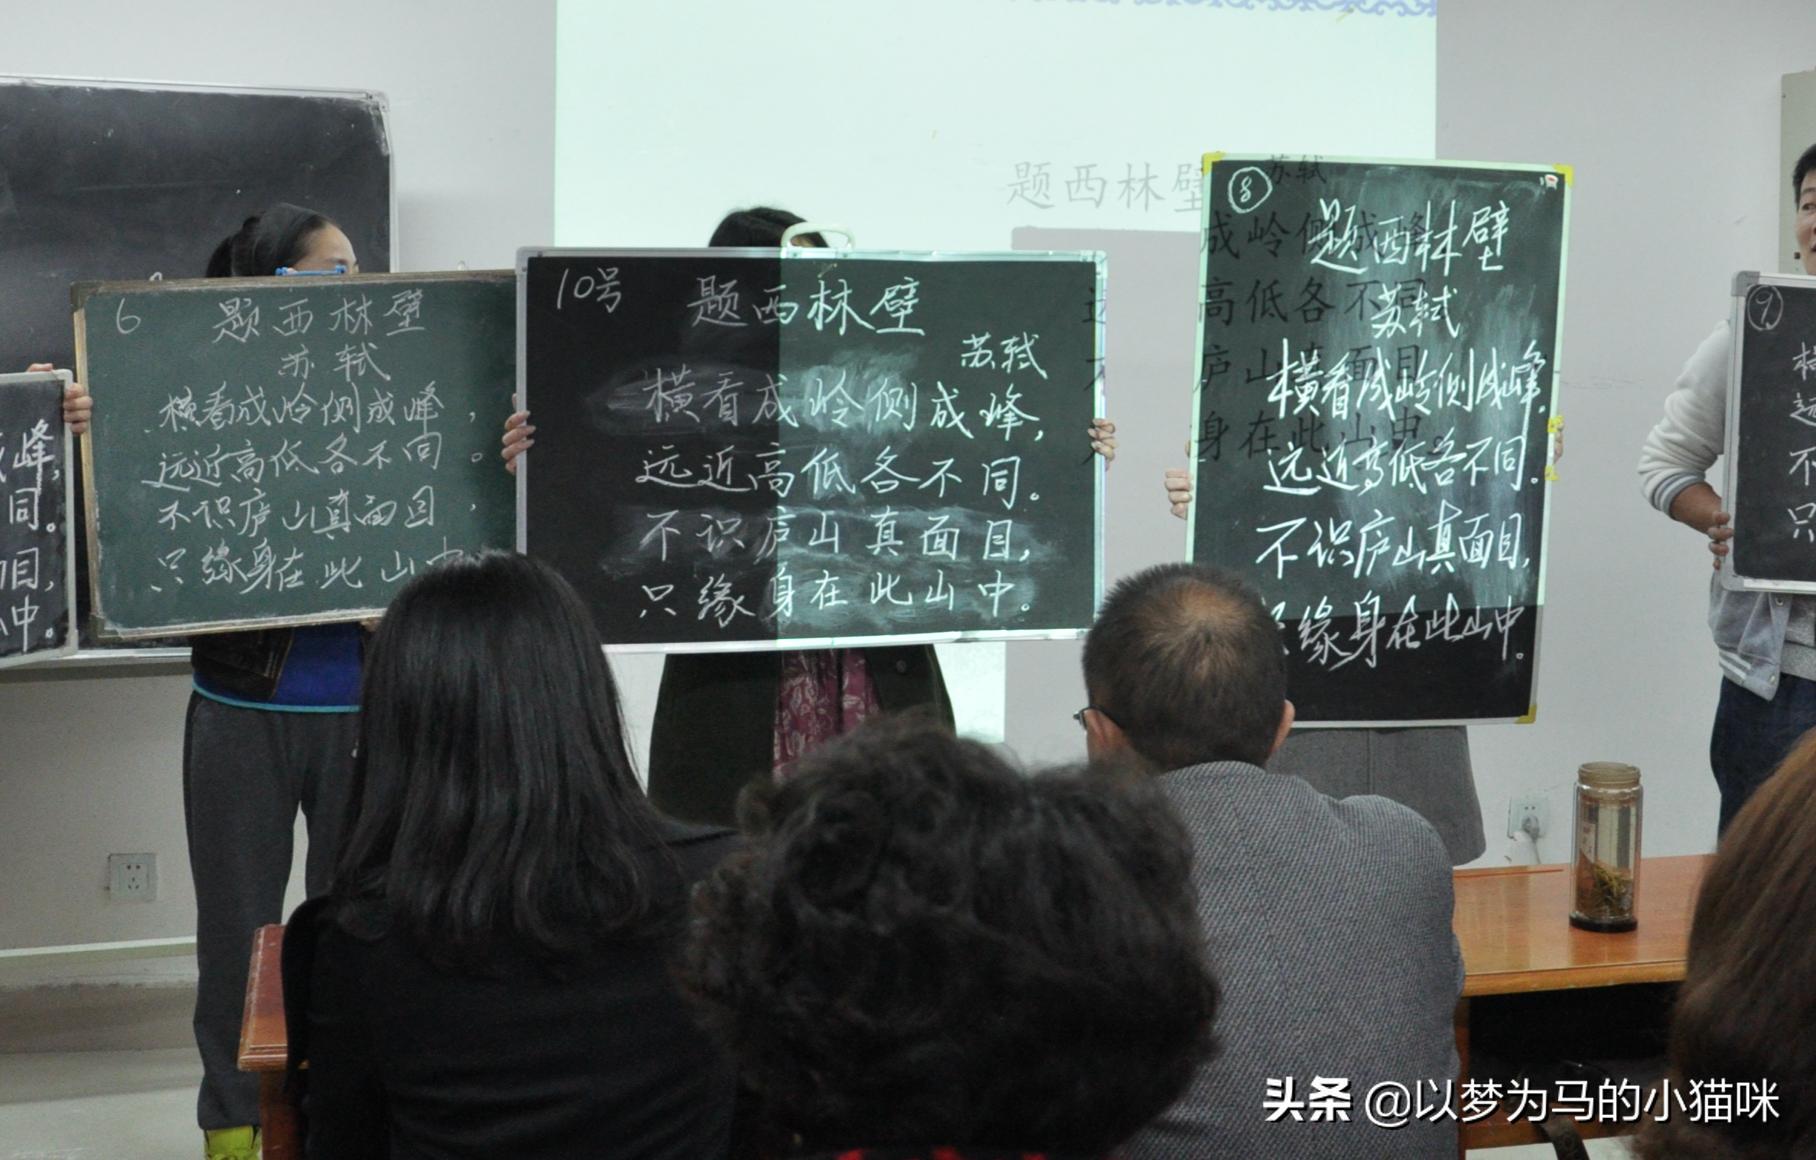 峰,
同。
目,
中。
6
题西林壁
苏轼
横看成岭侧成峰,
远近高低各不同。
不识庐山真面目,
只缘身在此山中
10号
题西林壁
苏轼
横看成岭侧成峰,
远近高低各不同。
不识庐山真面目,
只缘身在此山中。
题西林壁
苏轼
成岭侧成峰
高低各不同
庐山真面目
身在此山中。
8
题西林壁
苏轼
横看成岭侧成峰.
远近高低各不同.
不识庐山真面目,
缘身在此山中.
9
不
只
头条 @以梦为马的小猫咪